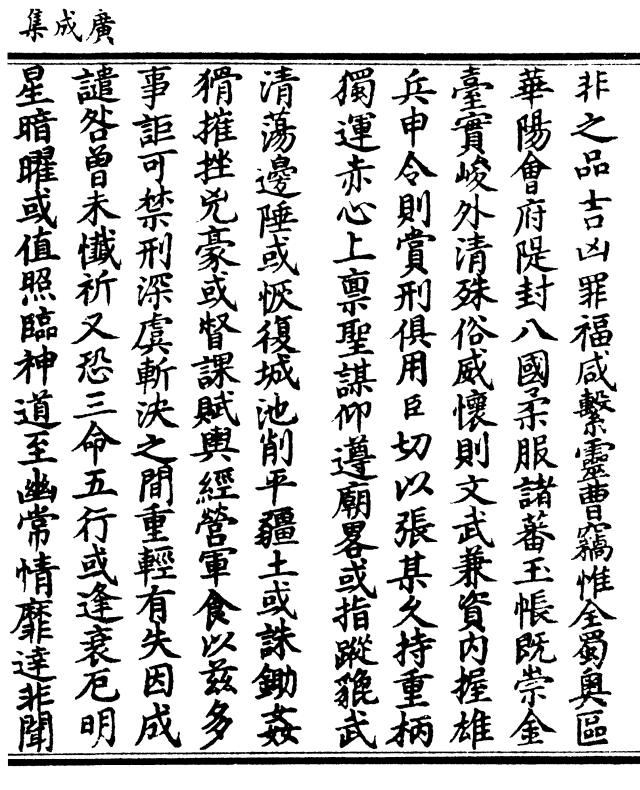 廣成集
非之品吉凶罪福咸繫靈曹竊惟全蜀奧區
華陽會府隄封八國柔服諸蕃玉帳既崇金
臺實峻外清殊俗威懷則文武兼資内握雄
兵申令則賞刑俱用臣切以張某久持重柄
獨運赤心上禀聖謀仰遵廟畧或指蹤貔武
清蕩邊陲或恢復城池削平疆土或誅鋤姦
猾摧挫兇豪或督課賦輿經營軍食以兹多
事詎可禁刑深虞斬決之間重輕有失因成
譴咎曾未懺祈又恐三命五行或逢衰厄明
星暗曜或值照臨神道至幽常情靡達非聞